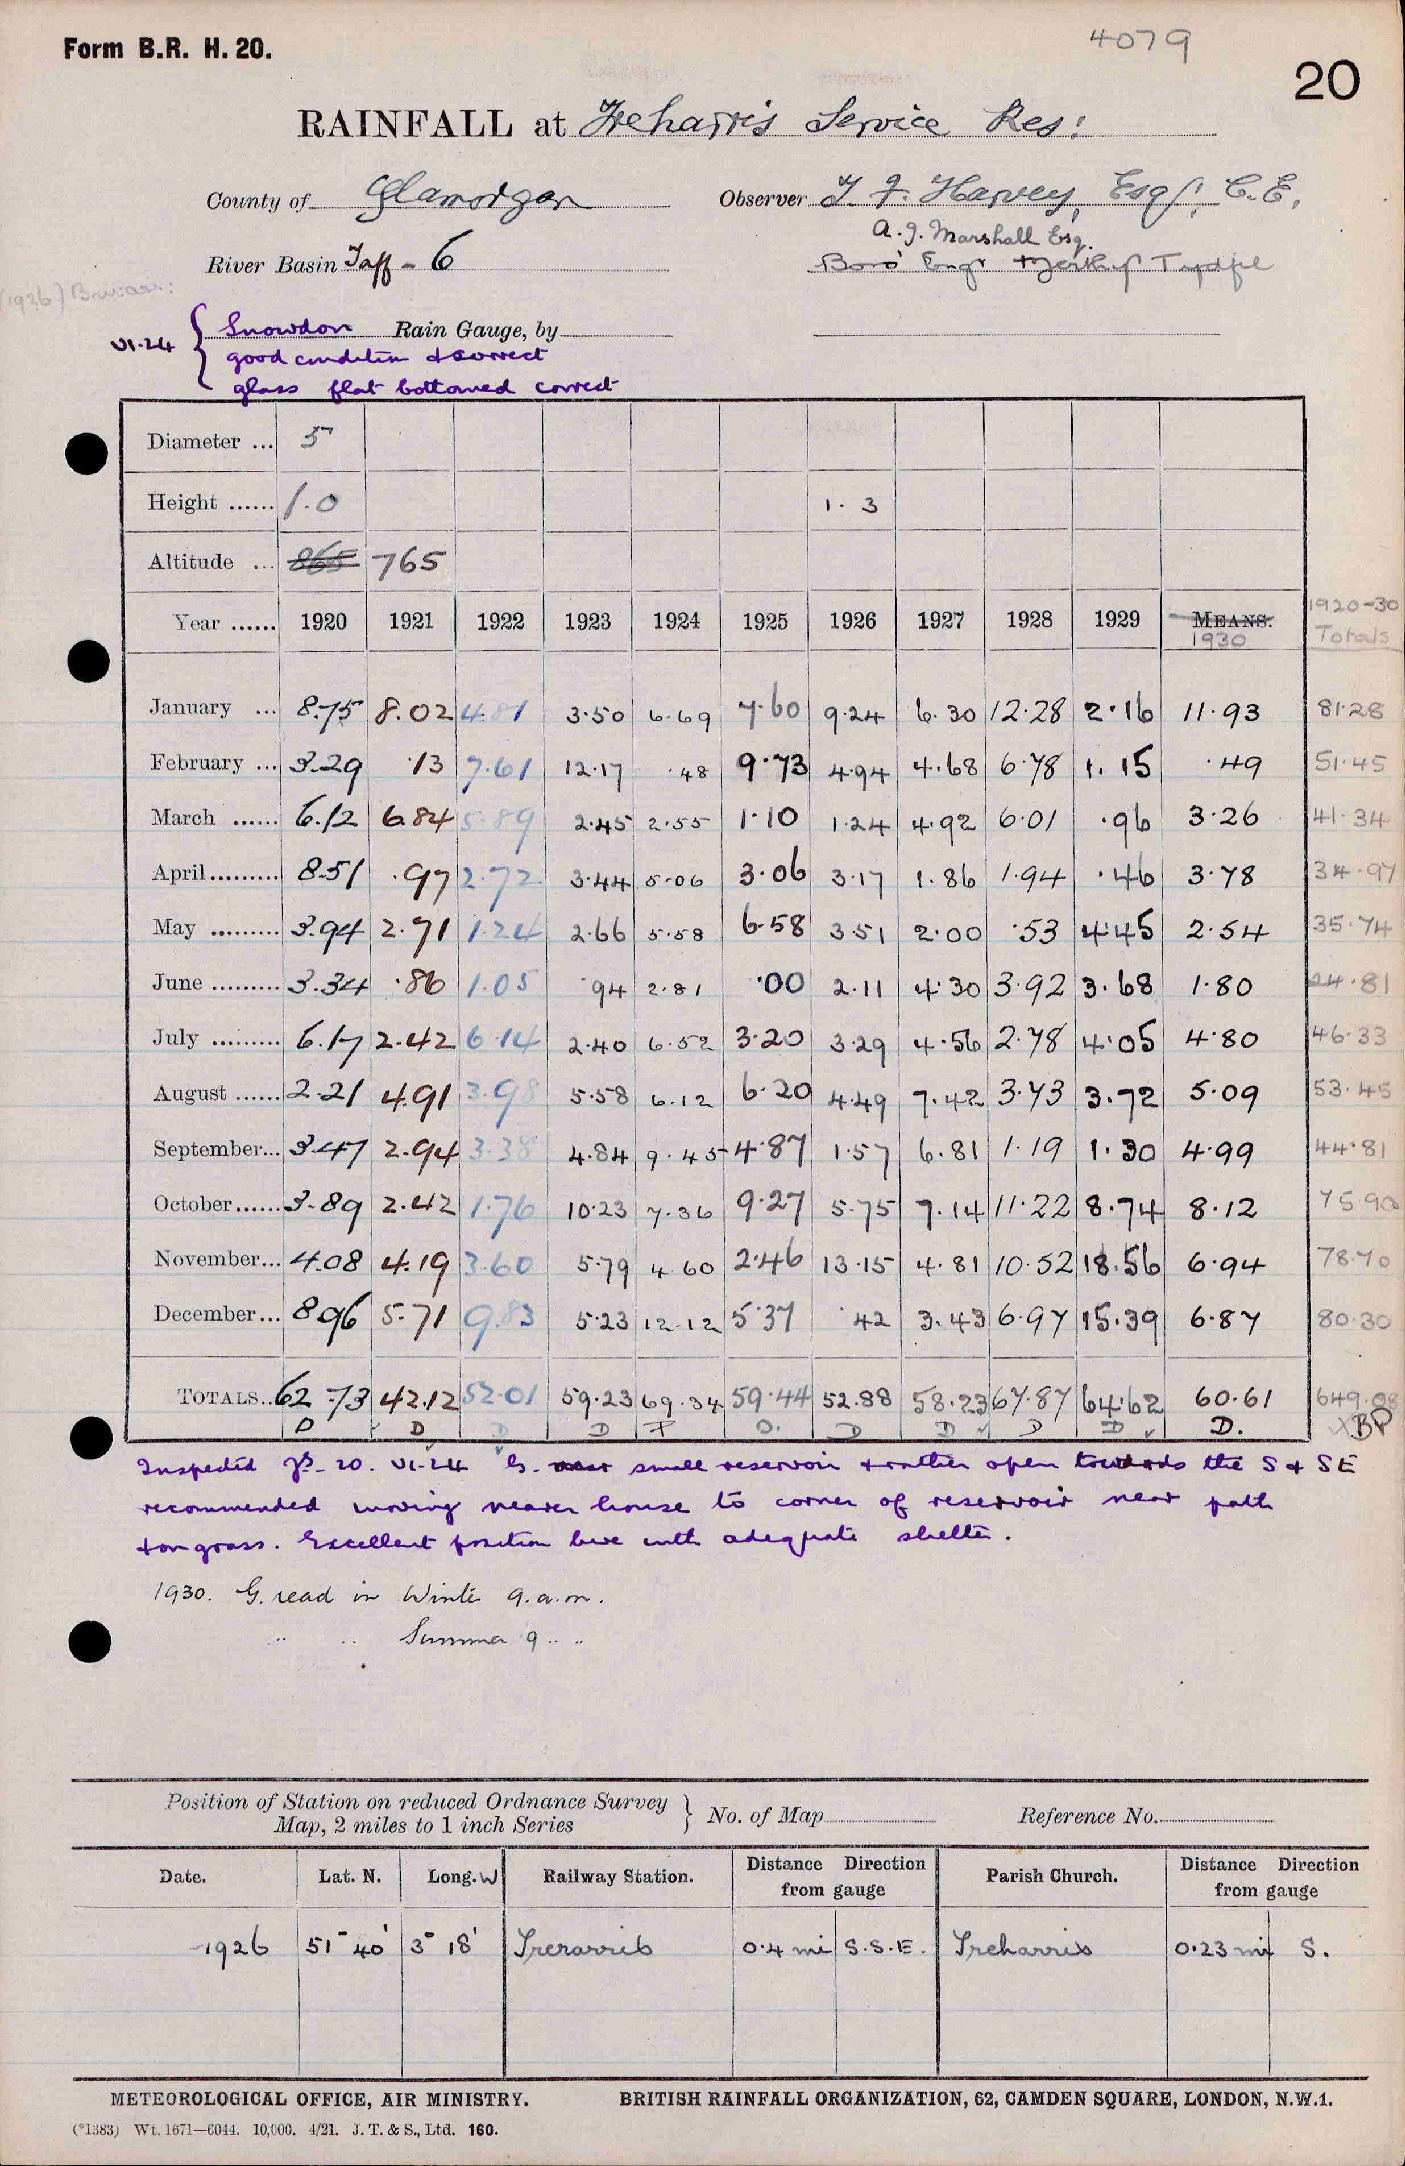 Form B.R. H. 20.
4079
20
RAINFALL at Treharris Service Res:
County of Glamorgan Observer T. F. Harvey, Esq., C.E.
A. J. Marshall Esq.
River Basin Taff - 6 Boro' Engr Merthyr Tydfil
(1926)
VI.24 { Snowdon Rain Gauge, by
good condition & correct
glass flat bottomed correct
Diameter ... 5
Height ...... 1.0 1.3
Altitude ... 865 765
Year ...... 1920 1921 1922 1923 1924 1925 1926 1927 1928 1929 MEANS. 1930 1920-30 Totals
January ... 8.75 8.02 4.81 3.50 6.69 7.60 9.24 6.30 12.28 2.16 11.93 81.28
February ... 3.29 .13 7.61 12.17 .48 9.73 4.94 4.68 6.78 1.15 .49 51.45
March ...... 6.12 6.84 5.89 2.45 2.55 1.10 1.24 4.92 6.01 .96 3.26 41.34
April......... 8.51 .97 2.72 3.44 5.06 3.06 3.17 1.86 1.94 .46 3.78 34.97
May ......... 3.94 2.71 1.24 2.66 5.58 6.58 3.51 2.00 .53 4.45 2.54 35.74
June ......... 3.34 .86 1.05 .94 2.81 .00 2.11 4.30 3.92 3.68 1.80 24.81
July ......... 6.17 2.42 6.14 2.40 6.52 3.20 3.29 4.56 2.78 4.05 4.80 46.33
August ...... 2.21 4.91 3.98 5.58 6.12 6.20 4.49 7.42 3.73 3.72 5.09 53.45
September... 3.47 2.94 3.38 4.84 9.45 4.87 1.57 6.81 1.19 1.30 4.99 44.81
October...... 3.89 2.42 1.76 10.23 7.36 9.27 5.75 7.14 11.22 8.74 8.12 75.90
November... 4.08 4.19 3.60 5.79 4.60 2.46 13.15 4.81 10.52 18.56 6.94 78.70
December... 8.96 5.71 9.83 5.23 12.12 5.37 .42 3.43 6.97 15.39 6.87 80.30
TOTALS.. 62.73 42.12 52.01 59.23 69.34 59.44 52.88 58.23 67.87 64.62 60.61 649.08
D D D D F D. D D D D D. X BP
Inspected 20. VI.24 G. near small reservoir & rather open towards the S & SE
recommended moving nearer house to corner of reservoir near path
& on grass. Excellent position here with adequate shelter.
1930. G. read in Winter 9.a.m.
" " Summer 9 " "
Position of Station on reduced Ordnance Survey Map, 2 miles to 1 inch Series } No. of Map Reference No.
Date. Lat. N. Long. W Railway Station. Distance Direction from gauge Parish Church. Distance Direction from gauge
1926 51° 40' 3° 18' Trerarris 0.4 mi S.S.E. Treharris 0.23 mi S.
METEOROLOGICAL OFFICE, AIR MINISTRY. BRITISH RAINFALL ORGANIZATION, 62, CAMDEN SQUARE, LONDON, N.W.1.
(*1383) Wt. 1671—6044. 10,000. 4/21. J. T. & S., Ltd. 160.